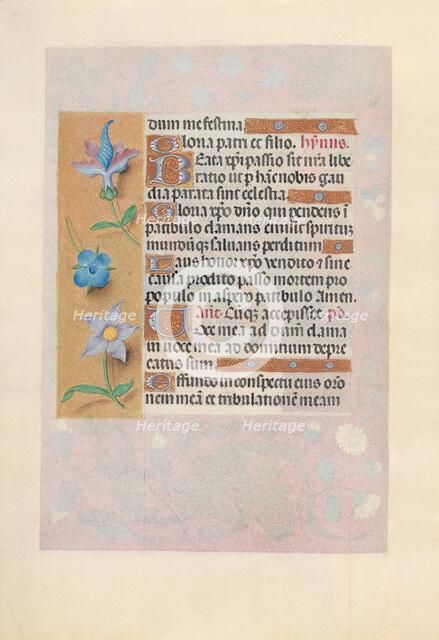 dum me festina
Gloria patri et filio. hỹnus.
Beata xp̄i passio sit n̄ra libe
ratio ut p hāc nobis gau
dia parata sint celestia
Gloria xp̄o dn̄o qui pendens ī
patibulo clamans emisit spiritū
mundūqꝫ saluans perditum
Laus honor xp̄o vendito ⁊ sine
causa prodito passo mortem pro
populo in aspero patibulo Amen.
Añe. Cūqꝫ accepisset pš
Uoce mea ad dominū clama
ui uoce mea ad dominum depre
catus sum
Effundo in conspectu eius orōo
nem meā et tribulationē meam
Heritage
Heritage
Heritage
Heritage
Heritage
Heritage